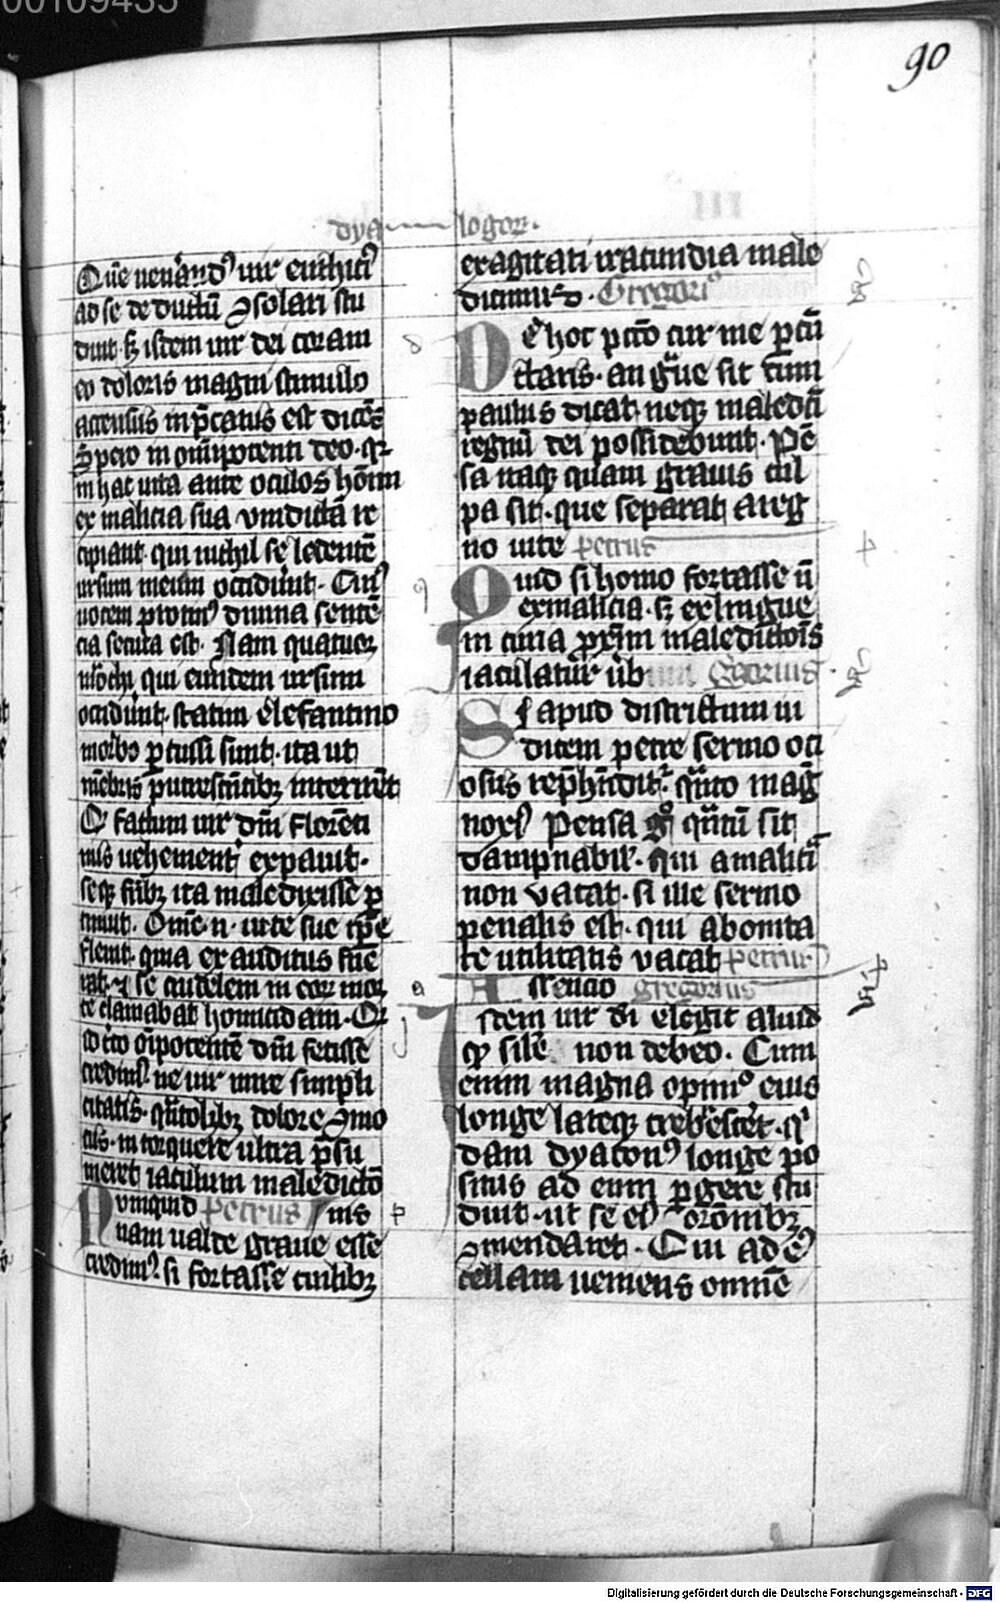 00109433
90
dya logoꝝ.
Quē ueuˀandꝰ uir euthiciꝰ
ad se deductū ꝯsolari stu
duit. sꝫ istem uir dei coram
eo doloris magni stimulo
accensus inp̄catus est dicēs
Spero in om̅ipotenti deo. qr
in hac uita ante oculos hoīm
ex malicia sua vindictā re
cipiant. qui nichil se ledentē
ursum meum occidunt. Cuiꝰ
uocem ꝓtinꝰ diuina sentē
cia secuta est. Nam quatuor
mōchi qui eundem ursum
occidunt. statim elefantino
morbo ꝑcussi sunt. ita ut
mēbris putrescētibꝫ interirēt
Qͦ factum uir dn̄i Florēti
nus uehementˀ expauit.
seqꝫ frībꝫ ita maledixisse ꝑ
timuit. Omī .n. uite sue tp̄e
fleuit. quia exauditus fue
rat. ⁊ se crudelem in eoꝝ mor
te clamabat homicidam. Qͦ
idcirco oīpotentē dm̄ fecisse
credimꝰ. ne uir mire simpli
citatis. quātolibꝫ dolore ꝯmo
tus. intorquere ultra p̄su
meret iaculum maledictōis
Numquid Petrus
nam ualde graue esse
credimꝰ. si fortasse cuilibꝫ
exagitati iracundia male
dicimus. Gregoriꝰ
De hoc pctō cur me ꝑcū
ctaris. an gͣue sit cum
paulus dicat. neqꝫ maledici
regnū dei possidebunt. Pē
sa itaqꝫ quam grauis cul
pa sit. que separat areg
no uite petrus
Quid si homo fortasse nͦ
exmalicia. sꝫ exlingue
in curia ꝓxīm maledictōis
iaculatur ūb Gregorius
Si apud districtum iu
dicem petre sermo oci
osus rep̄hēditˀ. qͣnto mag
noxꝰ Pensa gͦ qͣntū sit
dampnabilˀ. qui amaliciͣ
non vacat. si ille sermo
penalis est. qui abonita
te utilitatis vacat petrus
Assencio gregorius
Istem uir di elegit aliud
qͦ silē non debeo. Cum
enim magna opiniͦ eius
longe lateqꝫ crebˀescet. qͥ
dam dyaconꝰ longe po
situs ad eum ꝑgere stu
duit. ut se eiꝰ orōnibꝫ
ꝯmendaret. Cui ad eiꝰ
cellam ueniens omnē
Digitalisierung gefördert durch die Deutsche Forschungsgemeinschaft - DFG